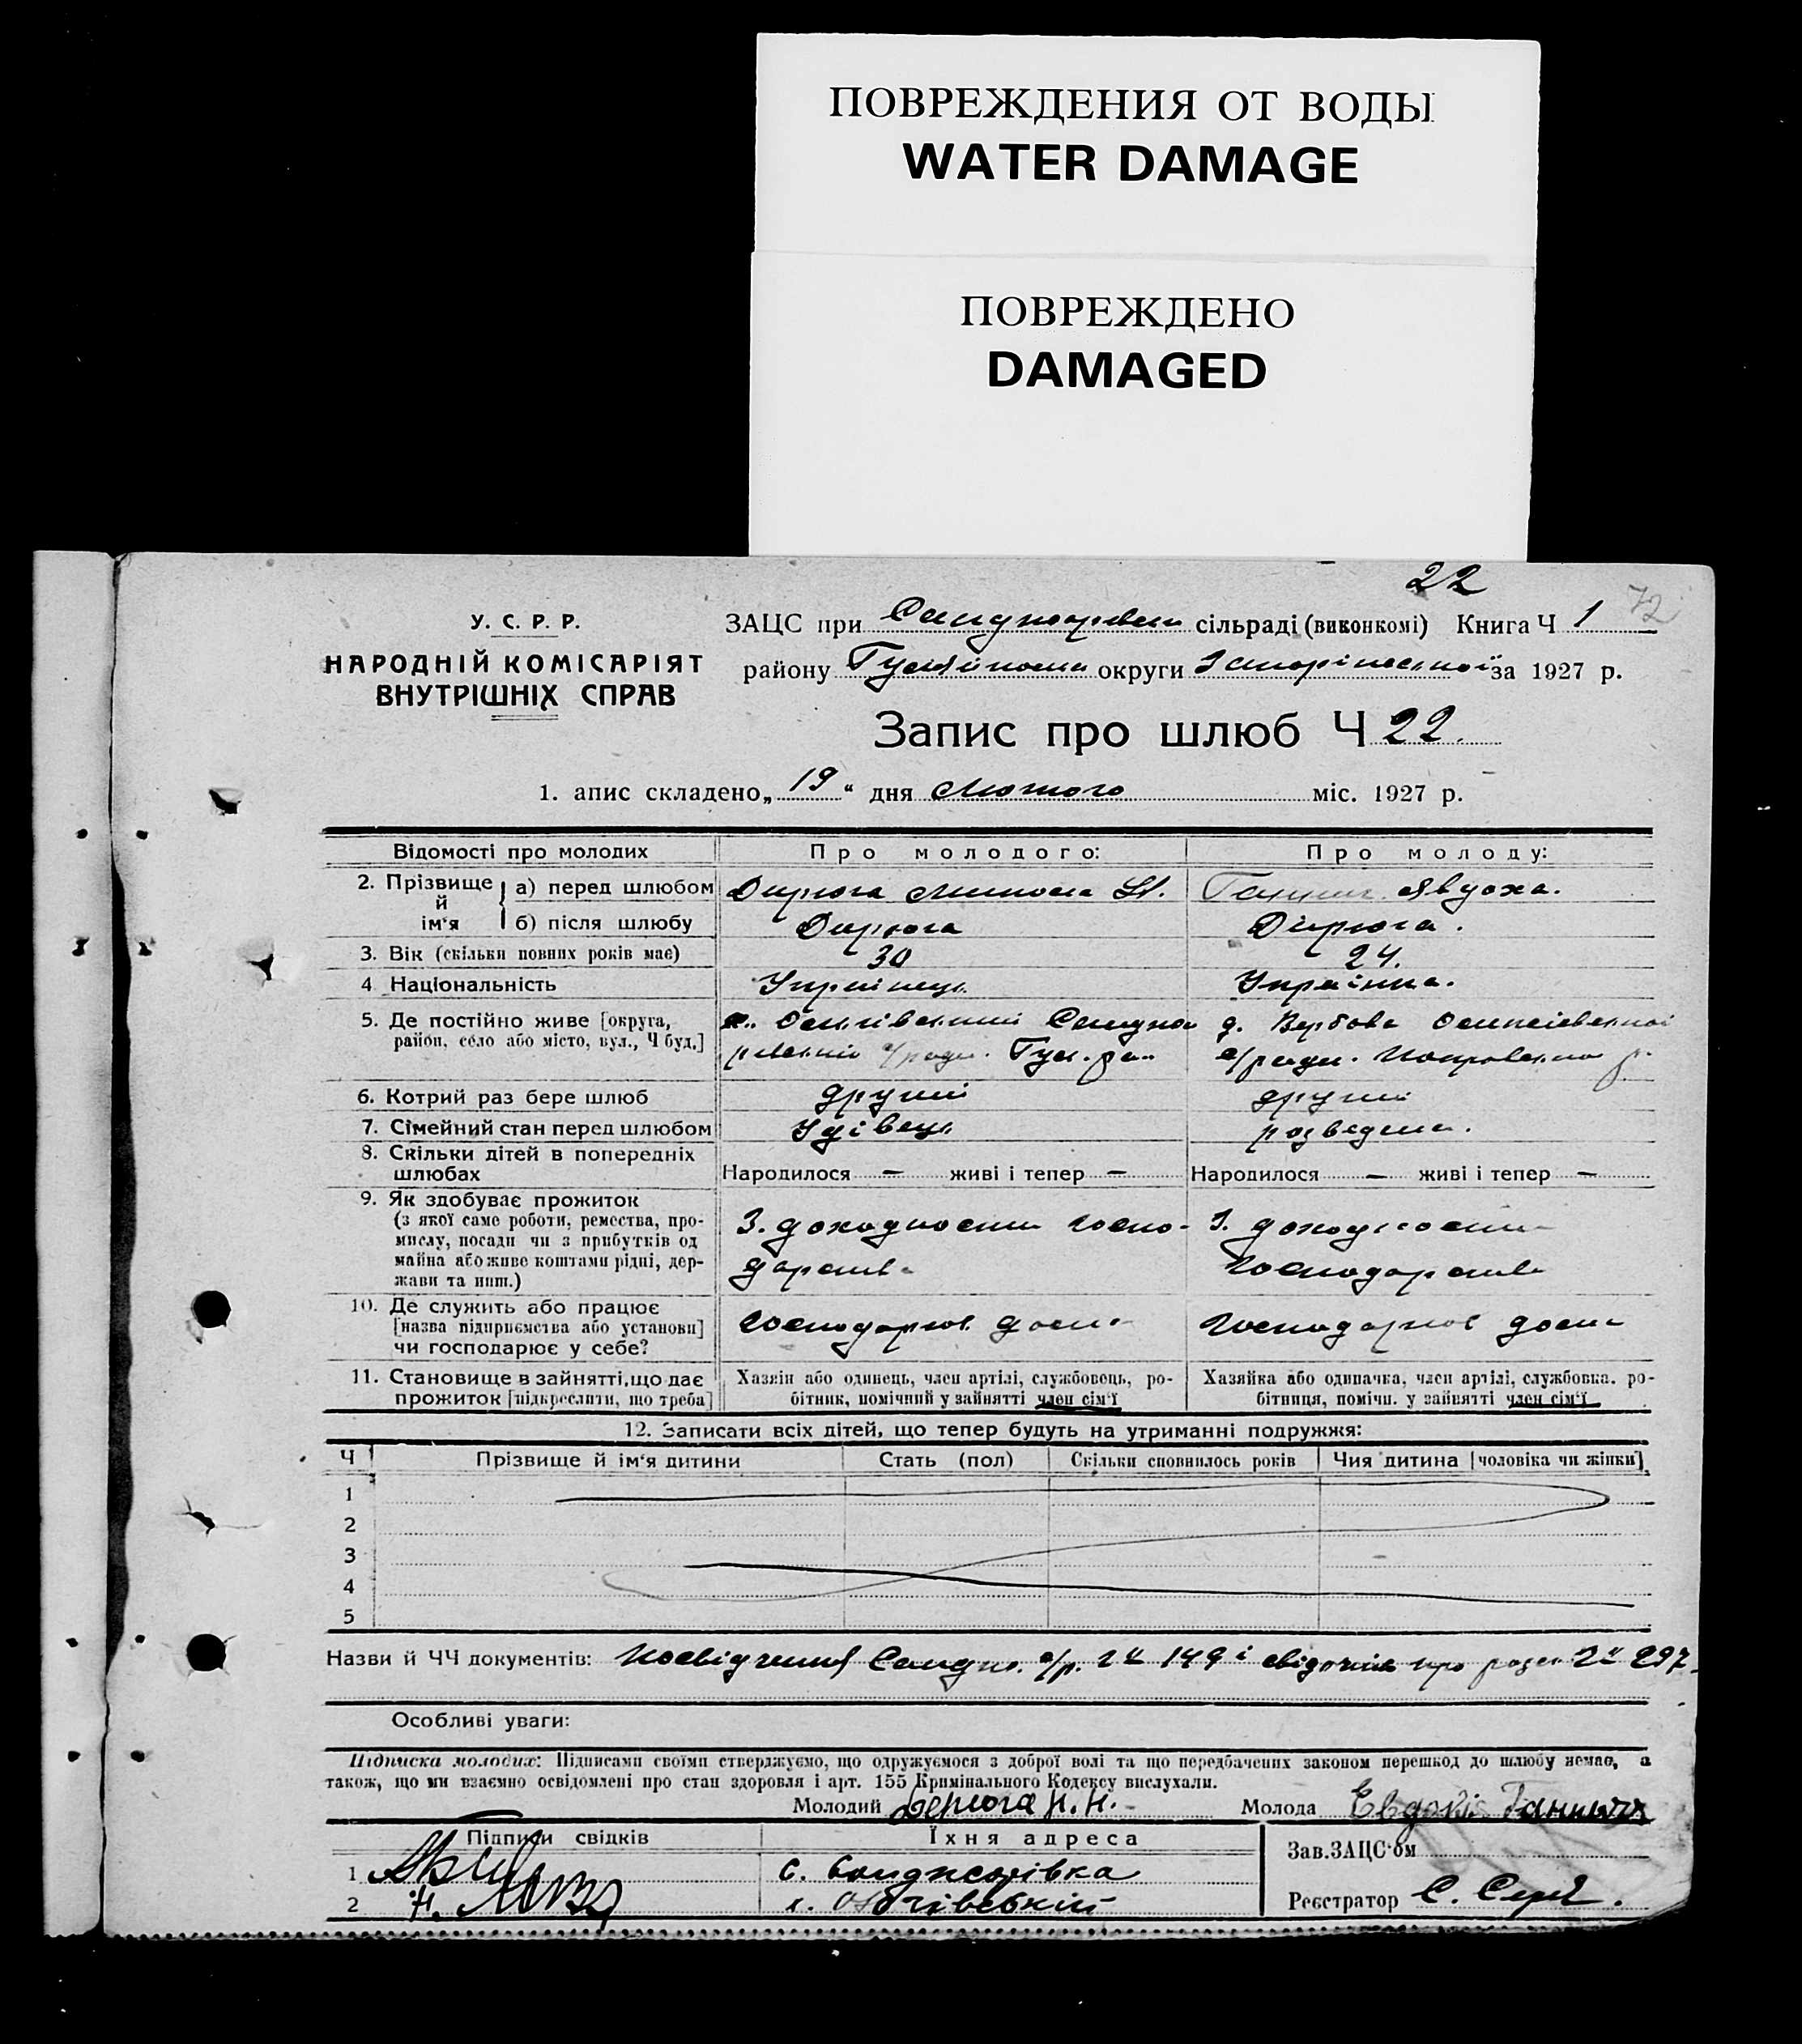 ПОВРЕЖДЕНИЯ ОТ ВОДЫ
WATER DAMAGE
ПОВРЕЖДЕНО
DAMAGED
22
72
У. С. Р. Р.
НАРОДНІЙ КОМІСАРІЯТ
ВНУТРІШНІХ СПРАВ
ЗАЦС при сільраді (виконкомі) Книга Ч 1
району округи за 1927 р.
Запис про шлюб Ч 22.
1. апис складено „ 19 “ дня Лютого міс. 1927 р.
Відомості про молодих Про молодого: Про молоду:
2. Прізвище й ім‘я а) перед шлюбом Явдоха.
б) після шлюбу Дирюга Дирюга.
3. Вік (скільки повних років має) 30 24.
4 Національність Українець Українка.
5. Де постійно живе [округа, д. Вербова
район, село або місто, вул., Ч буд.] с/ради. Гул. с/ради.
6. Котрий раз бере шлюб другий другий
7. Сімейний стан перед шлюбом Удівець розведена.
8. Скільки дітей в попередніх
шлюбах Народилося — живі і тепер — Народилося — живі і тепер —
9. Як здобуває прожиток
(з якої саме роботи, ремества, про-
мислу, посади чи з прибутків од З. доходности госпо- З. доходности
майна або живе коштами рідні, дер- дарства Господарства
жави та инш.)
10. Де служить або працює
[назва підприємства або установи] Господарює дома Господарює дома
чи господарює у себе?
11. Становище в зайнятті, що дає Хазяїн або одинець, член артілі, службовець, ро- Хазяйка або одиначка, член артілі, службовка. ро-
прожиток [підкреслити, що треба] бітник, помічний у зайнятті член сім‘ї бітниця, помічн. у зайнятті член сім‘ї
12. Записати всіх дітей, що тепер будуть на утриманні подружжя:
Ч Прізвище й ім‘я дитини Стать (пол) Скільки сповнилось років Чия дитина [чоловіка чи жінки]
1
2
3
4
5
Назви й ЧЧ документів: Посвідчення с/р. 149 і свідоцтво про 297
Особливі уваги:
Підписка молодих: Підписами своїми стверджуємо, що одружуємося з доброї волі та що передбачених законом перешкод до шлюбу немає, а
також, що ми взаємно освідомлені про стан здоровля і арт. 155 Кримінального Кодексу вислухали.
Молодий Молода
Підписи свідків Їхня адреса
Зав.ЗАЦС‘ом
1 с.
2
Реєстратор С.